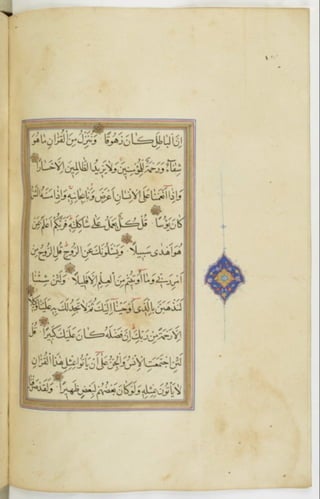 اِنَّ الْبَاطِلَ كَانَ زَهُوقًا وَنُنَزِّلُ مِنَ الْقُرْاٰنِ مَا هُوَ
شِفَاۤءٌ وَرَحْمَةٌ لِلْمُؤْمِنِينَ وَلَا يَزِيدُ الظَّالِمِينَ اِلَّا خَسَارًا
وَاِذَا اَنْعَمْنَا عَلَى الْاِنْسَانِ اَعْرَضَ وَنَاٰ بِجَانِبِهِ وَاِذَا مَسَّهُ الشَّرُّ
كَانَ يَؤُسًا قُلْ كُلٌّ يَعْمَلُ عَلٰى شَاكِلَتِهِ فَرَبُّكُمْ اَعْلَمُ بِمَنْ
هُوَ اَهْدٰى سَبِيلًا وَيَسْئَلُونَكَ عَنِ الرُّوحِ قُلِ الرُّوحُ مِنْ
اَمْرِ رَبِّي وَمَا اُوتِيتُمْ مِنَ الْعِلْمِ اِلَّا قَلِيلًا وَلَئِنْ شِئْنَا
لَنَذْهَبَنَّ بِالَّذِي اَوْحَيْنَا اِلَيْكَ ثُمَّ لَا تَجِدُ لَكَ بِهِ عَلَيْنَا وَكِيلًا
اِلَّا رَحْمَةً مِنْ رَبِّكَ اِنَّ فَضْلَهُ كَانَ عَلَيْكَ كَبِيرًا قُلْ
لَئِنِ اجْتَمَعَتِ الْاِنْسُ وَالْجِنُّ عَلٰى اَنْ يَأْتُوا بِمِثْلِ هٰذَا الْقُرْاٰنِ
لَا يَأْتُونَ بِمِثْلِهِ وَلَوْ كَانَ بَعْضُهُمْ لِبَعْضٍ ظَهِيرًا وَلَقَدْ صَرَّفْنَا